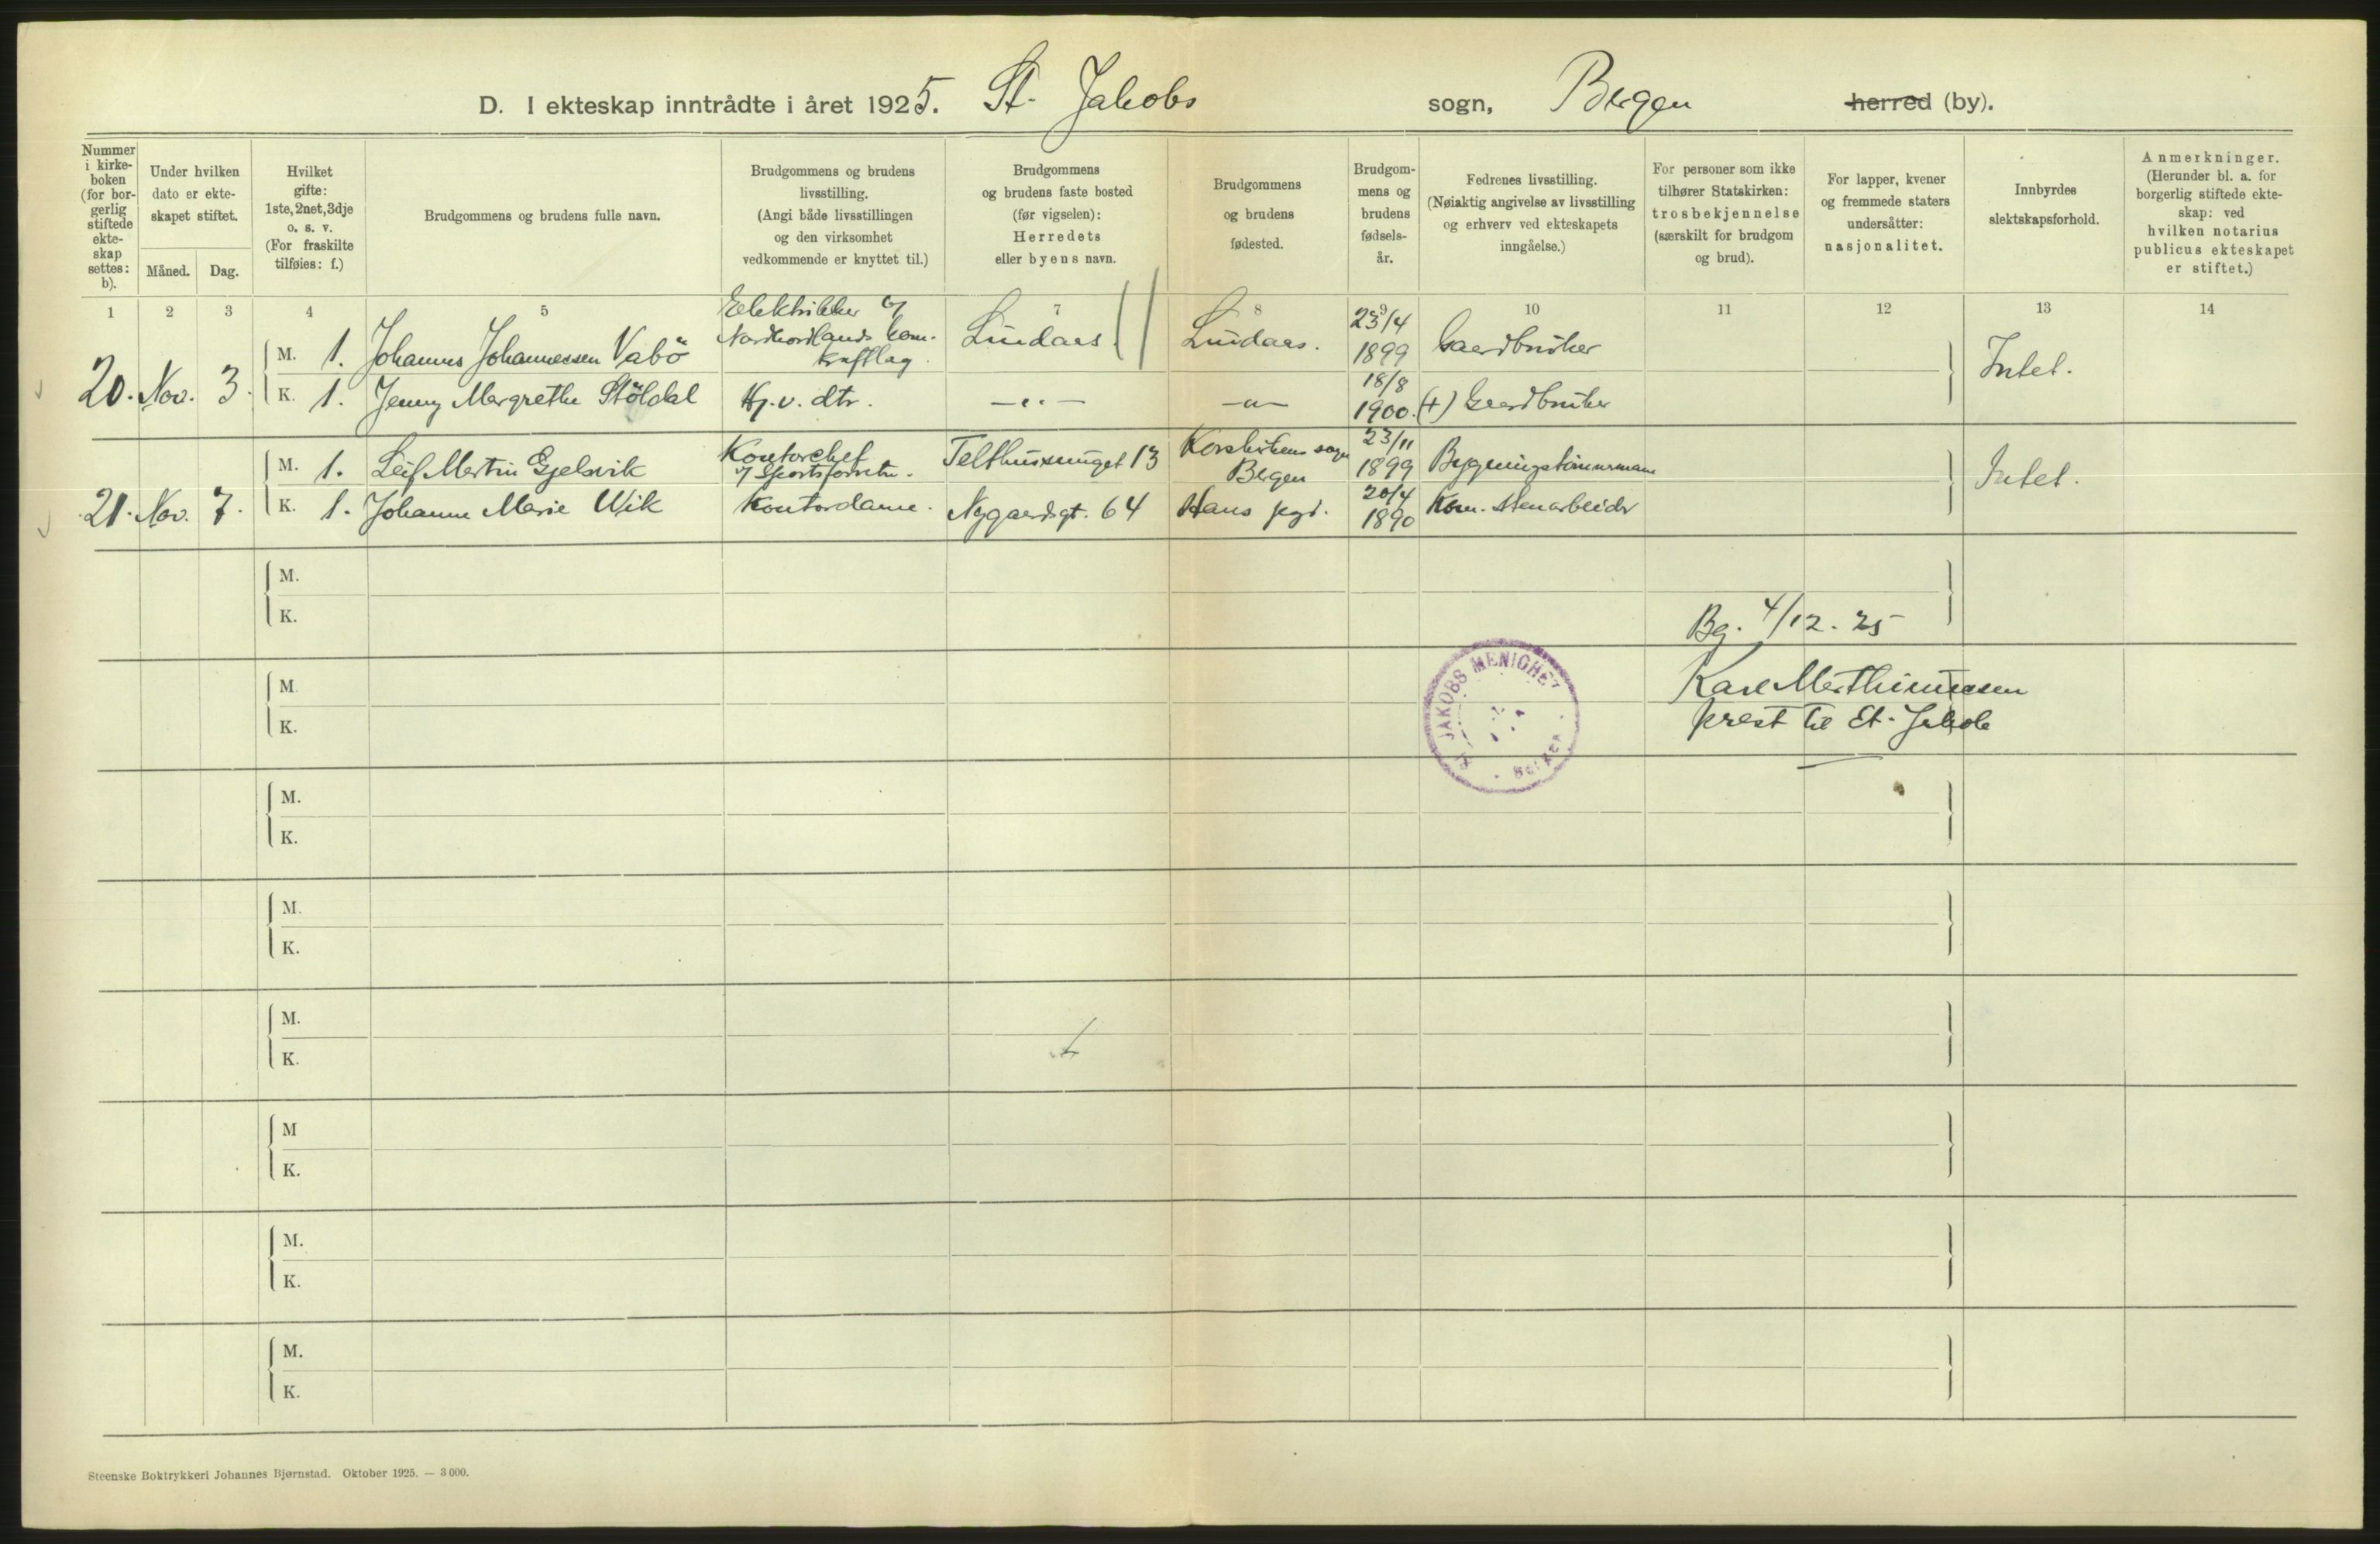 D. I ekteskap inntrådte i året 1925. St. Jakobs sogn, Bergen herred (by).
Nummer i kirke-boken (for bor-gerlig stiftede ekte-skap settes: b).
Under hvilken dato er ekte-skapet stiftet.
Måned. Dag.
Hvilket gifte: 1ste, 2net, 3dje o. s. v. (For fraskilte tilføies: f.)
Brudgommens og brudens fulle navn.
Brudgommens og brudens livsstilling. (Angi både livsstillingen og den virksomhet vedkommende er knyttet til.)
Brudgommens og brudens faste bosted (før vigselen): Herredets eller byens navn.
Brudgommens og brudens fødested.
Brudgom-mens og brudens fødsels-år.
Fedrenes livsstilling. (Nøiaktig angivelse av livsstilling og erhverv ved ekteskapets inngåelse.)
For personer som ikke tilhører Statskirken: trosbekjennelse (særskilt for brudgom og brud).
For lapper, kvener og fremmede staters undersåtter: nasjonalitet.
Innbyrdes slektskapsforhold.
Anmerkninger. (Herunder bl. a. for borgerlig stiftede ekte-skap: ved hvilken notarius publicus ekteskapet er stiftet.)
1 2 3 4 5 7 8 9 10 11 12 13 14
20. Nov. 3.
M. 1. Johannes Johannessen Vabö Elektriker v/ Nordhordlands kom. kraftlag. Lindaas. Lindaas. 23/4 1899 Gaardbruker Intet.
K. 1. Jenny Margrethe Stöldal Hj. v. dtr. —"— —"— 18/8 1900. (+) Gaardbruker
21. Nov. 7.
M. 1. Leif Martin Gjelsvik Kontorchef v/ Sportsforretn. Telthussmuget 13 Korskirkens sogn Bergen 23/11 1899 Bygningstömmermann Intet.
K. 1. Johanne Marie Wik Kontordame. Nygaardsgt. 64 Hans pgd. 20/4 1890 Kom. stenarbeider
M.
K.
Bg. 4/12. 25
M.
K.
ST. JAKOBS MENIGHET BERGEN
Karl Marthinussen
prest til St. Jakob
M.
K.
M.
K.
M.
K.
M
K.
M.
K.
M.
K.
Steenske Boktrykkeri Johannes Bjørnstad. Oktober 1925. — 3 000.